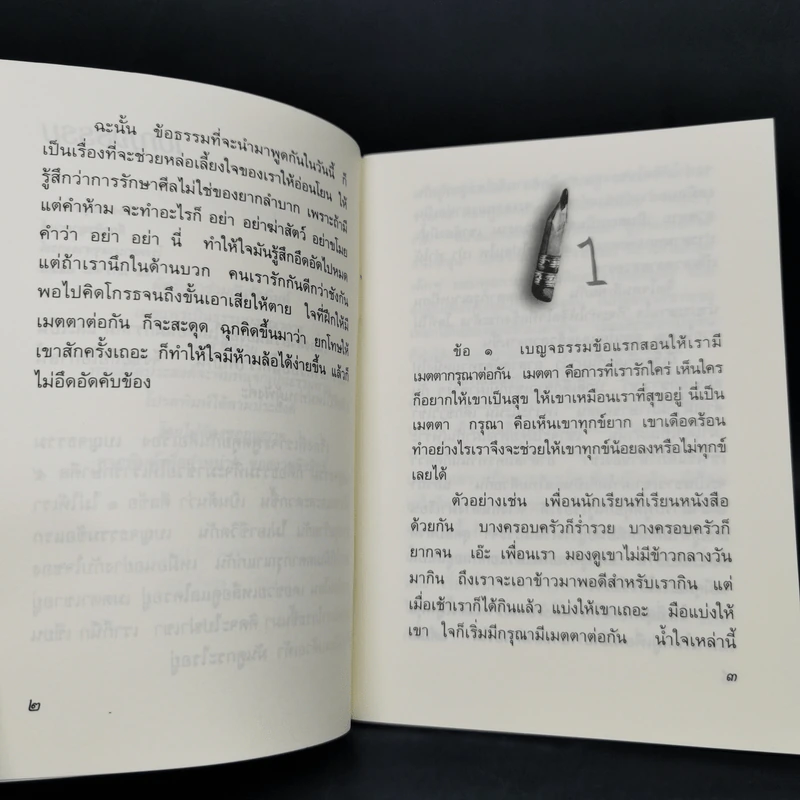 ฉะนั้น ข้อธรรมที่จะนำมาพูดกันในวันนี้ ก็
เป็นเรื่องที่จะช่วยหล่อเลี้ยงใจของเราให้อ่อนโยน ให้
รู้สึกว่าการรักษาศีลไม่ใช่ของยากลำบาก เพราะถ้ามี
แต่คำห้าม จะทำอะไรก็ อย่า อย่าฆ่าสัตว์ อย่าขโมย
คำว่า อย่า อย่า นี่ ทำให้ใจมันรู้สึกอึดอัดไปหมด
แต่ถ้าเรานึกในด้านบวก คนเรารักกันดีกว่าชังกัน
พอไปคิดโกรธจนถึงขั้นเอาเสียให้ตาย ใจที่ฝึกให้มี
เมตตาต่อกัน ก็จะสะดุด ฉุกคิดขึ้นมาว่า ยกโทษให้
เขาสักครั้งเถอะ ก็ทำให้ใจมีห้ามล้อได้ง่ายขึ้น แล้วก็
ไม่อึดอัดคับข้อง
๒
1
ข้อ ๑ เบญจธรรมข้อแรกสอนให้เรามี
เมตตากรุณาต่อกัน เมตตา คือการที่เรารักใคร่ เห็นใคร
ก็อยากให้เขาเป็นสุข ให้เขาเหมือนเราที่สุขอยู่ นี่เป็น
เมตตา กรุณา คือเห็นเขาทุกข์ยาก เขาเดือดร้อน
ทำอย่างไรเราจึงจะช่วยให้เขาทุกข์น้อยลงหรือไม่ทุกข์
เลยได้
ตัวอย่างเช่น เพื่อนนักเรียนที่เรียนหนังสือ
ด้วยกัน บางครอบครัวก็ร่ำรวย บางครอบครัวก็
ยากจน เอ๊ะ เพื่อนเรา มองดูเขาไม่มีข้าวกลางวัน
มากิน ถึงเราจะเอาข้าวมาพอดีสำหรับเรากิน แต่
เมื่อเช้าเราก็ได้กินแล้ว แบ่งให้เขาเถอะ มือแบ่งให้
เขา ใจก็เริ่มมีกรุณามีเมตตาต่อกัน น้ำใจเหล่านี้
๓